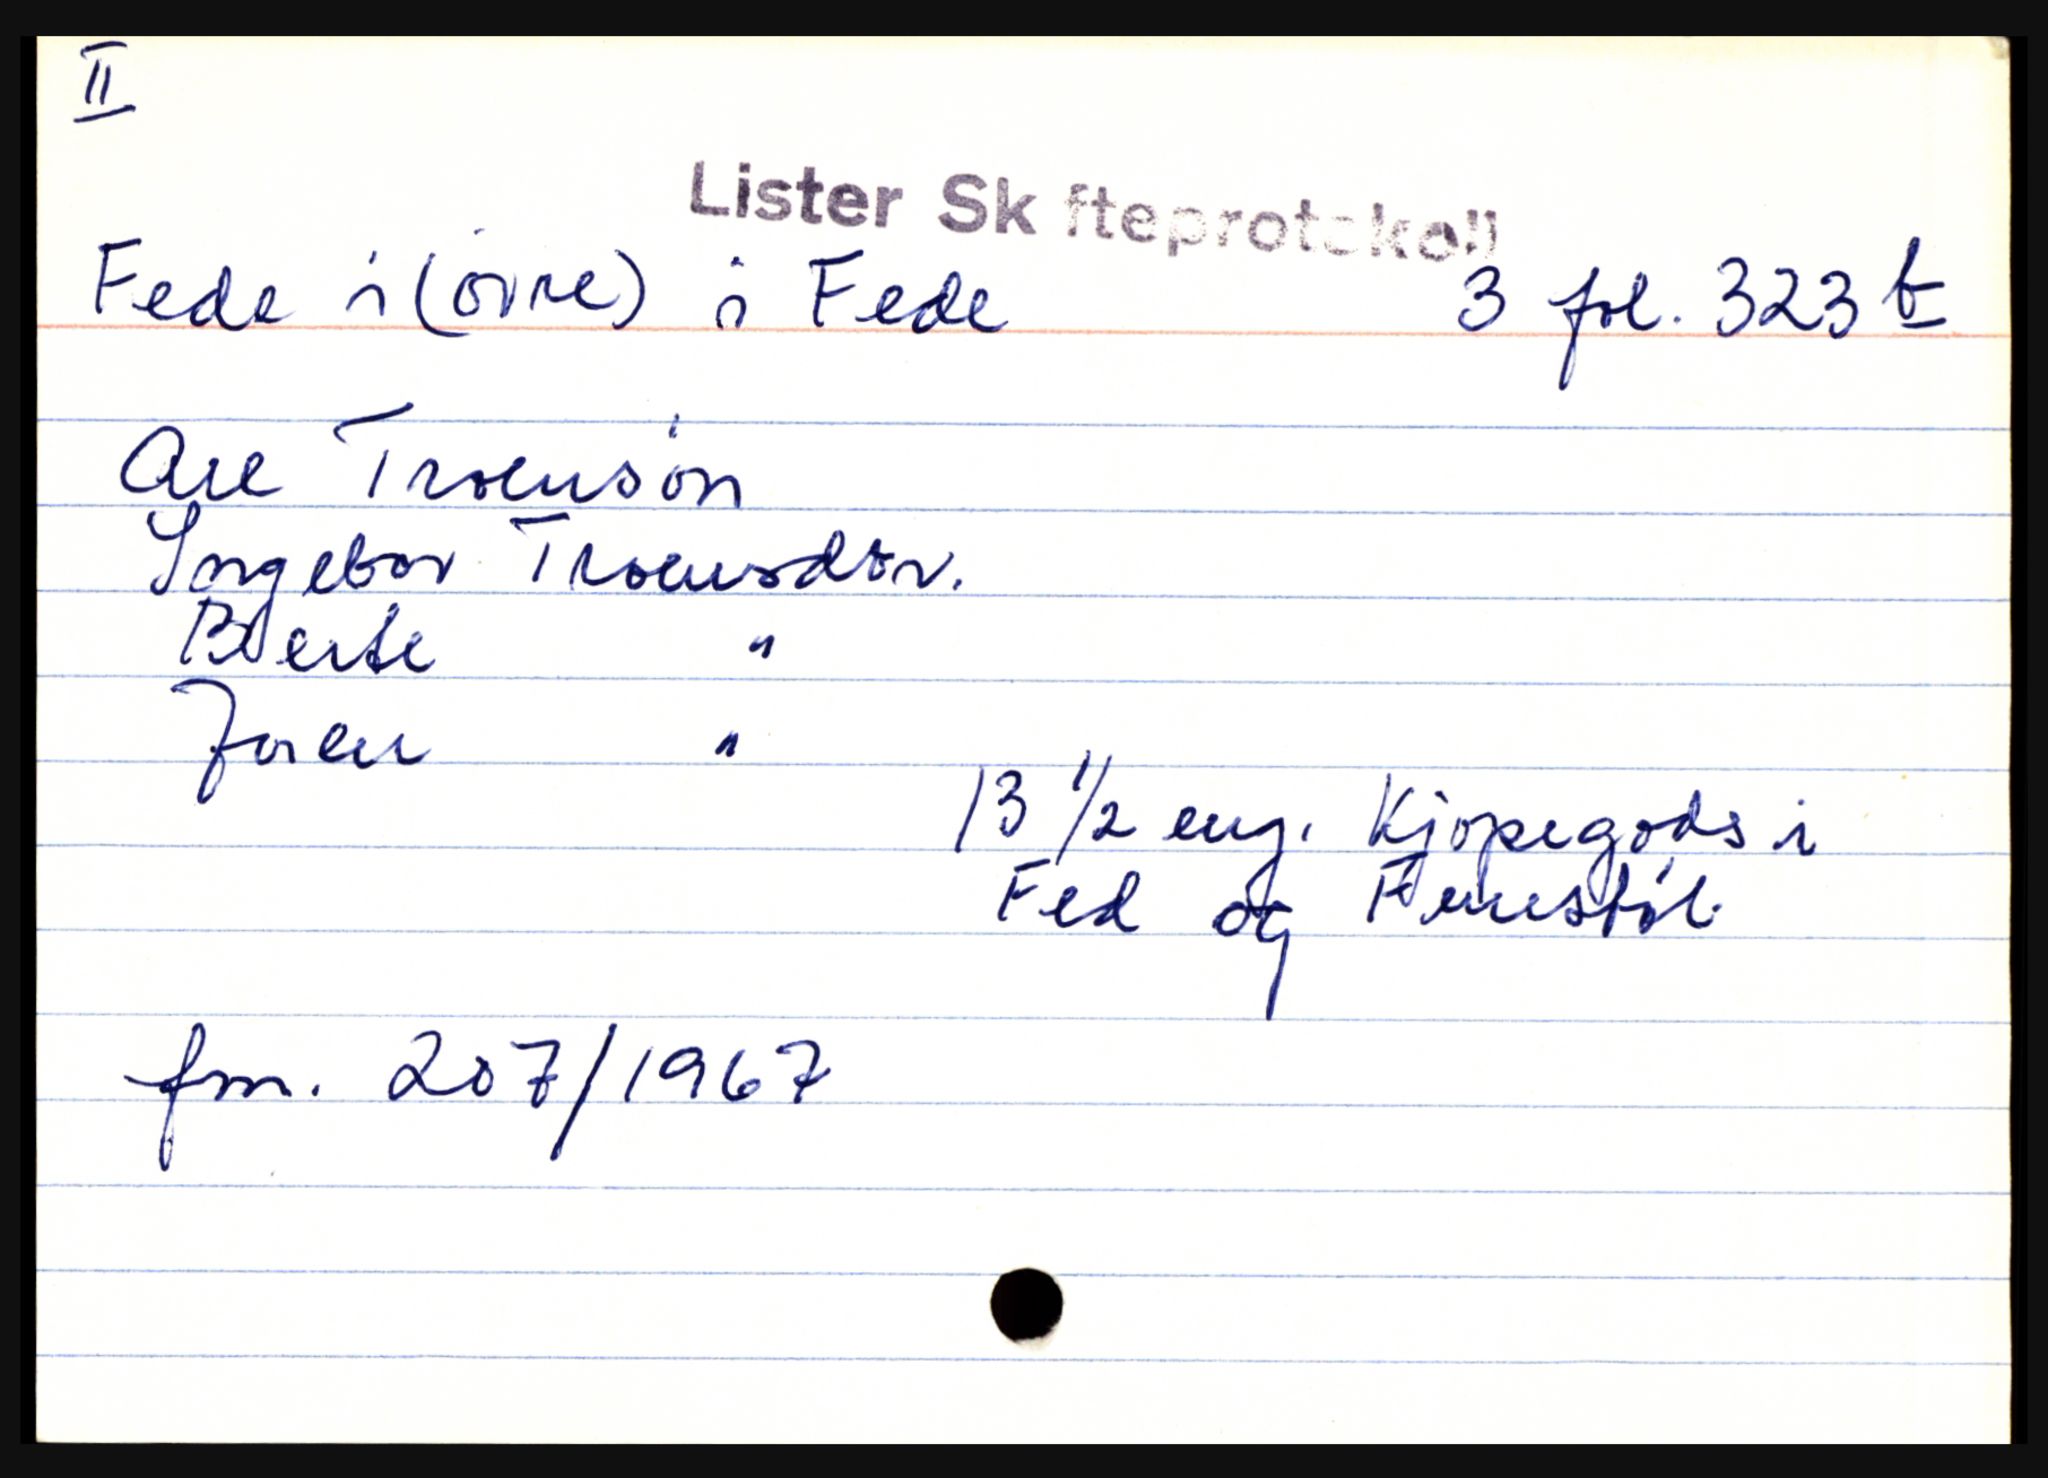 II
Lister Skifteprotokoll
Fede i (övre) i Fede 3 fol. 323 b
Are Troensön
Ingebor Troensdtr.
Berte "
Joren "
13 1/2 eng. Kjöpegods i
Fed og
fm. 207/1967